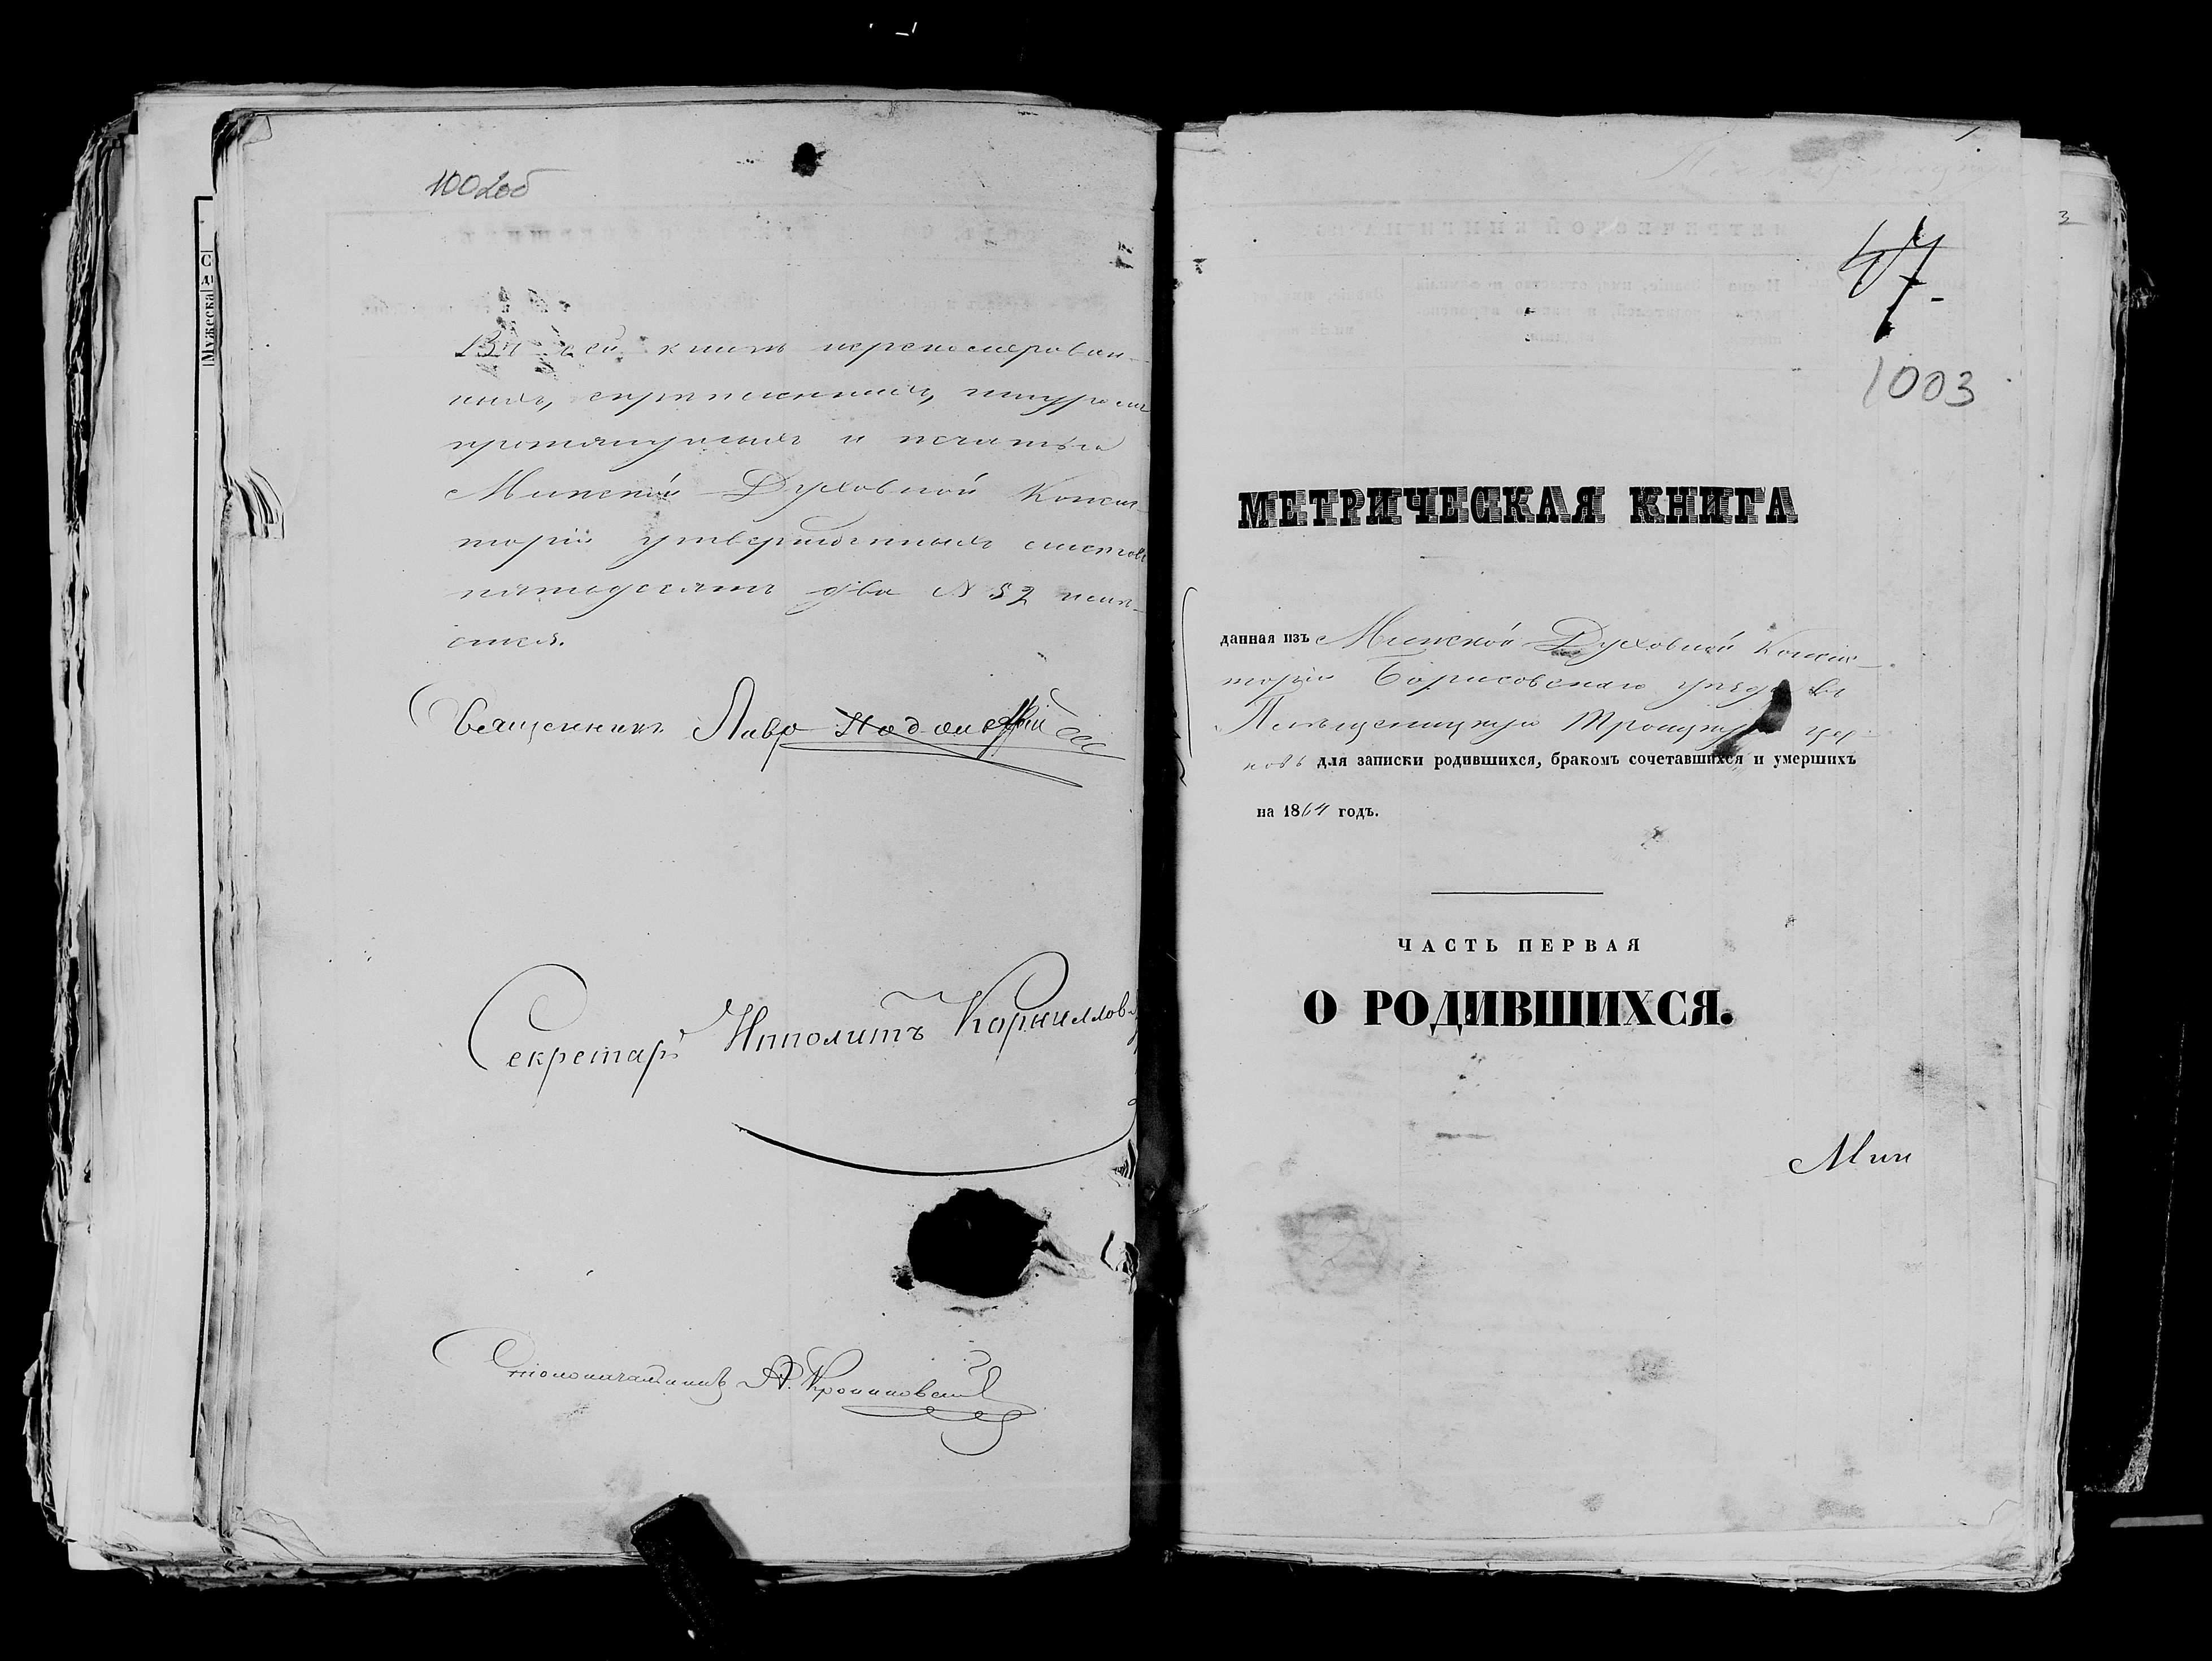 1002об
Въ сей книгѣ перенумерован-
ныхъ, скрѣпленныхъ, шнуромъ
протянутыхъ и печатью
Минской Духовной Консис
торіи утвержденныхъ листовъ
пятьдесятъ два № 52 имѣ-
ется.
Священникъ
Секретарь Ипполитъ Корнилловъ
Столоначальникъ А.
Мужеска
47.
1003
3
МЕТРИЧЕСКАЯ КНИГА
данная изъ Минской Духовной Консис-
торіи Борисовскаго уѣзда въ
Плещеницкую Троицкую цер-
ковь для записки родившихся, бракомъ сочетавшихся и умершихъ
на 1864 годъ.
ЧАСТЬ ПЕРВАЯ
О РОДИВШИХСЯ.
Мин